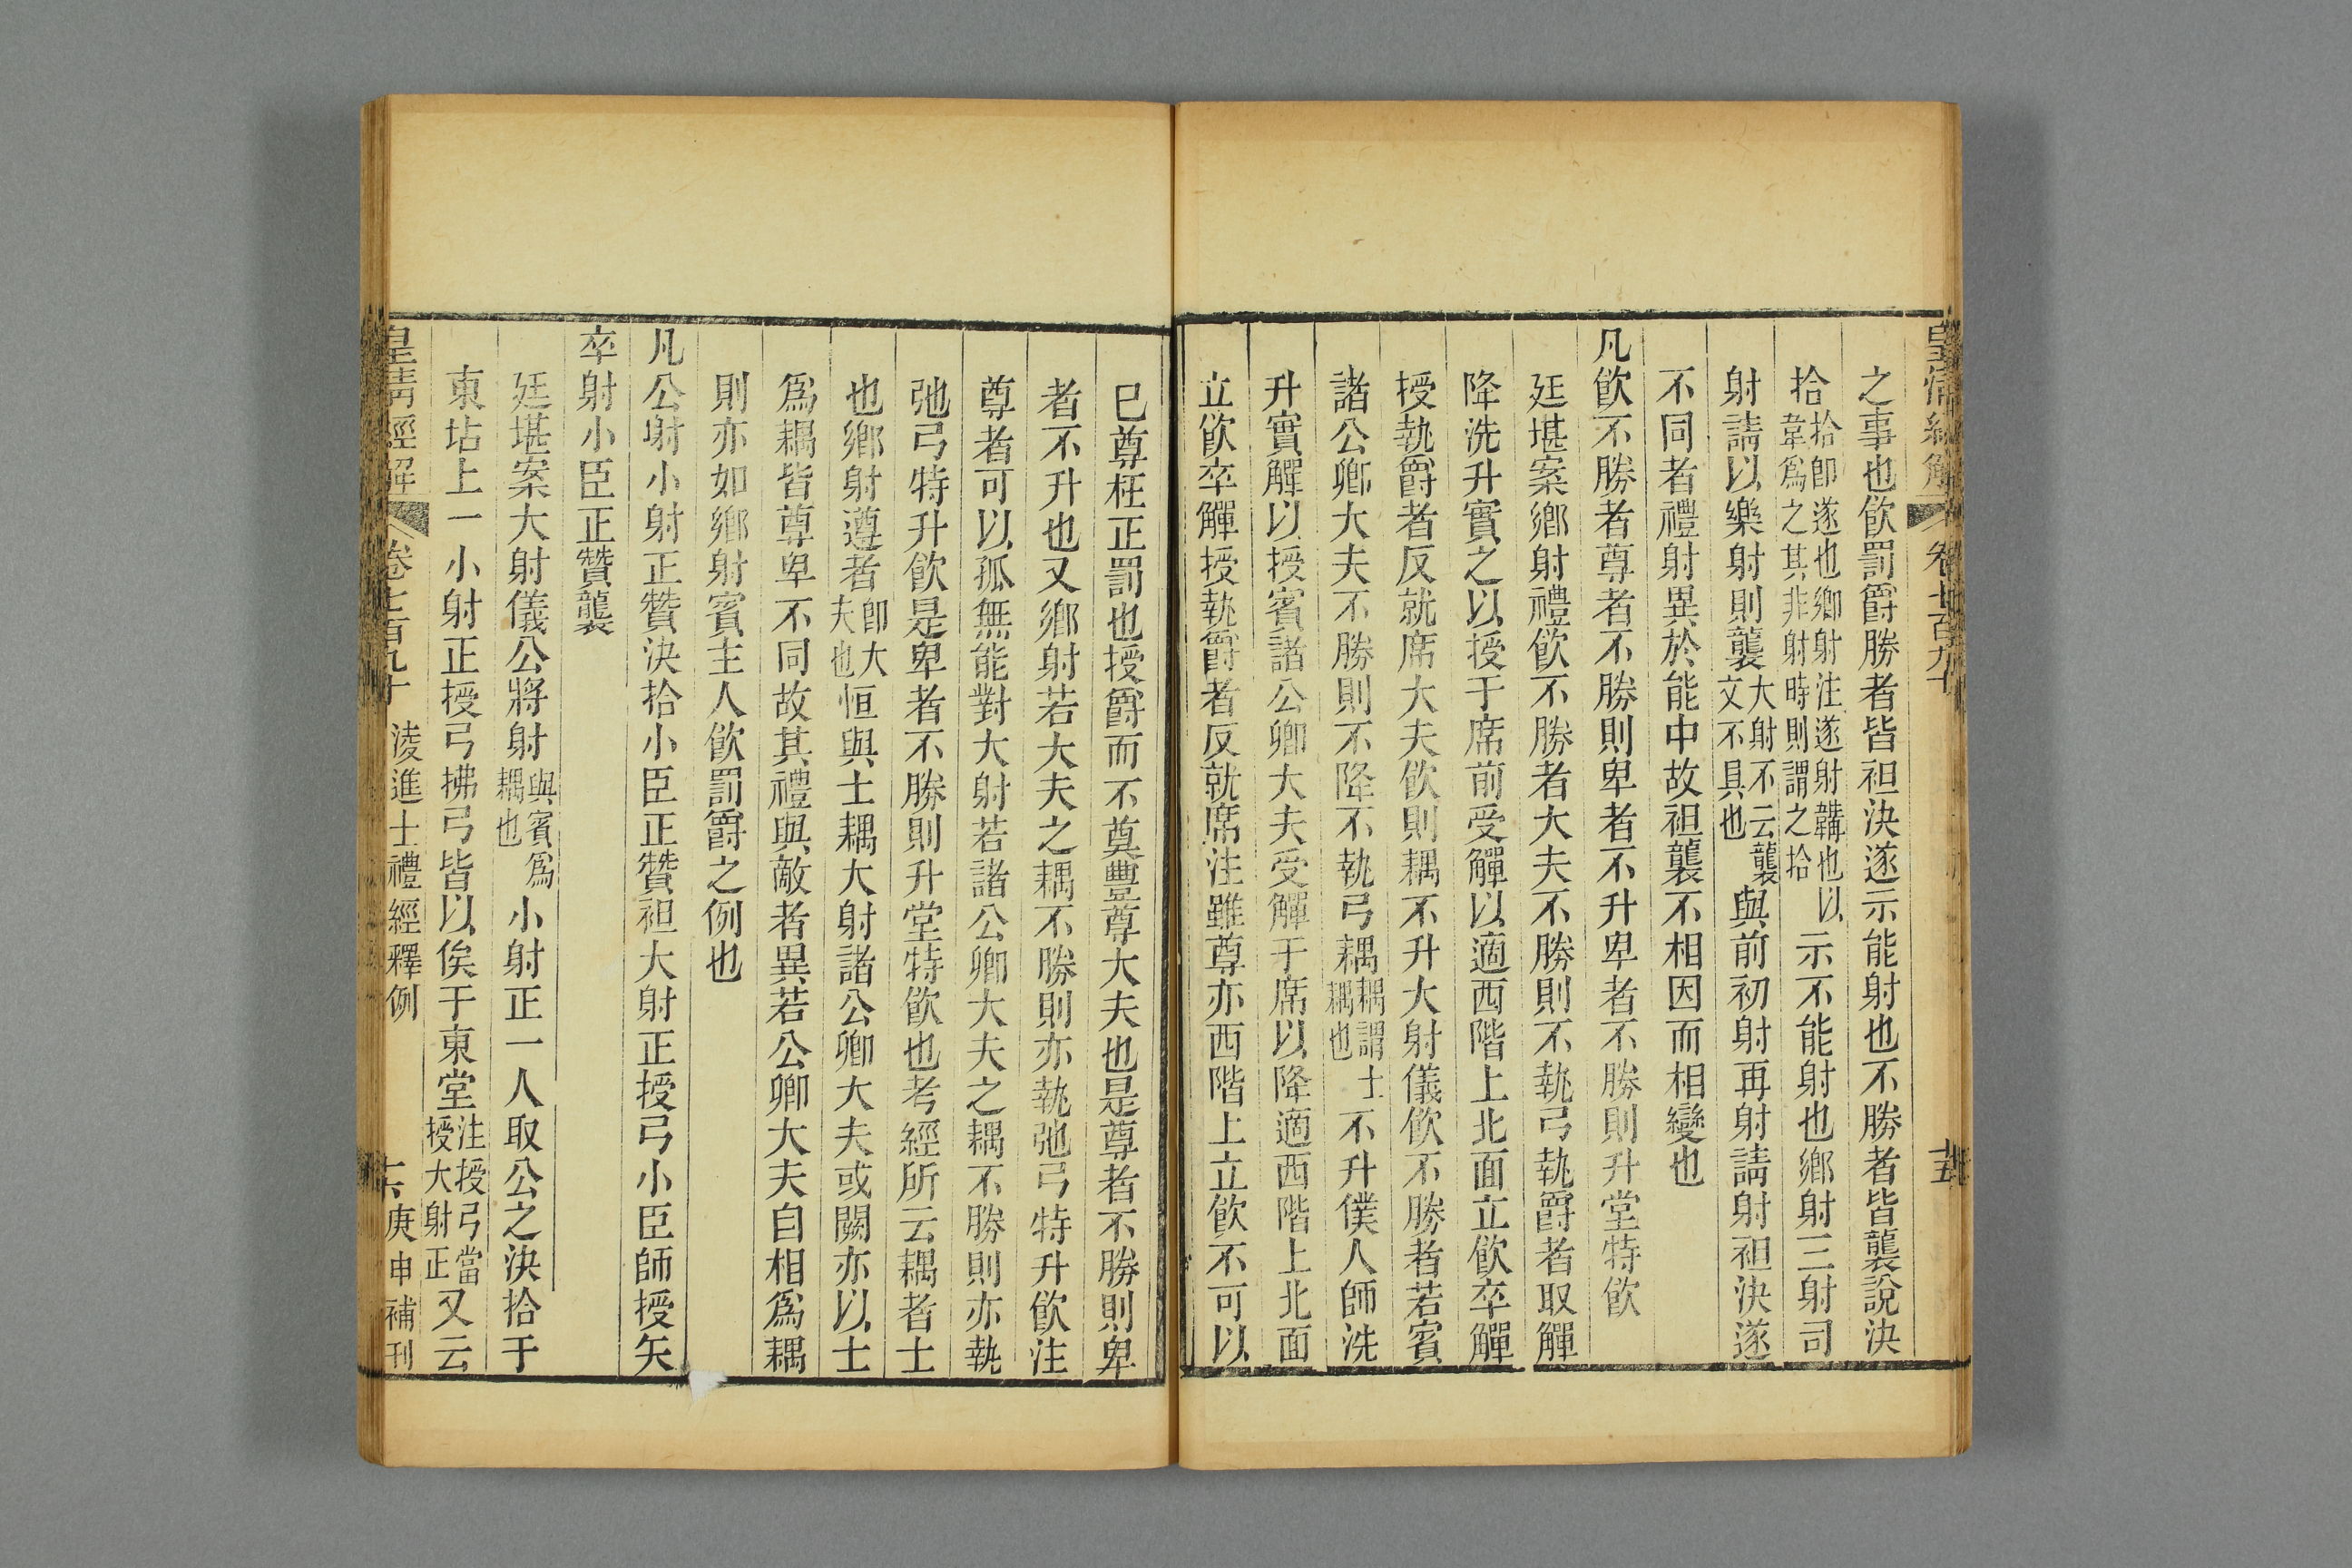 皇清經解 卷七百九十 十五
之事也飮罰爵勝者皆袒決遂示能射也不勝者皆襲說決
拾拾卽遂也鄕射注遂射韝也以韋爲之其非射時則謂之拾示不能射也鄕射三射司
射請以樂射則襲大射不云襲文不具也與前初射再射請射袒決遂
不同者禮射異於能中故袒襲不相因而相變也
凡飮不勝者尊者不勝則卑者不升卑者不勝則升堂特飮
廷堪案鄕射禮飮不勝者大夫不勝則不執弓執爵者取觶
降洗升實之以授于席前受觶以適西階上北面立飮卒觶
授執爵者反就席大夫飮則耦不升大射儀飮不勝者若賓
諸公卿大夫不勝則不降不執弓耦耦謂士耦也不升僕人師洗
升實觶以授賓諸公卿大夫受觶于席以降適西階上北面
立飮卒觶授執爵者反就席注雖尊亦西階上立飮不可以
已尊枉正罰也授爵而不奠豐尊大夫也是尊者不勝則卑
者不升也又鄕射若大夫之耦不勝則亦執弛弓特升飮注
尊者可以孤無能對大射若諸公卿大夫之耦不勝則亦執
弛弓特升飮是卑者不勝則升堂特飮也考經所云耦者士
也鄕射遵者卽大夫也恒與士耦大射諸公卿大夫或闕亦以士
爲耦皆尊卑不同故其禮與敵者異若公卿大夫自相爲耦
則亦如鄕射賓主人飮罰爵之例也
凡公射小射正贊決拾小臣正贊袒大射正授弓小臣師授矢
卒射小臣正贊襲
廷堪案大射儀公將射與賓爲耦也小射正一人取公之決拾于
東坫上一小射正授弓拂弓皆以俟于東堂注授弓當授大射正又云
皇淸經解 卷七百九十 淩進士禮經釋例 十六 庚申補刊